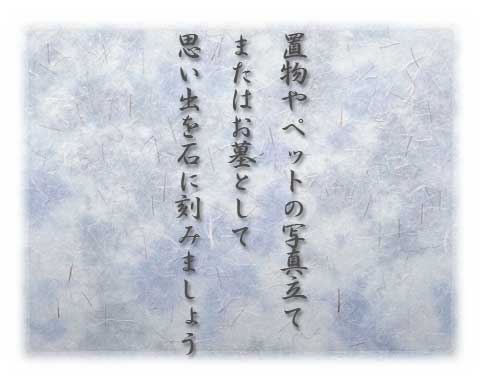 置物やペットの写真立て
またはお墓として
思い出を石に刻みましょう